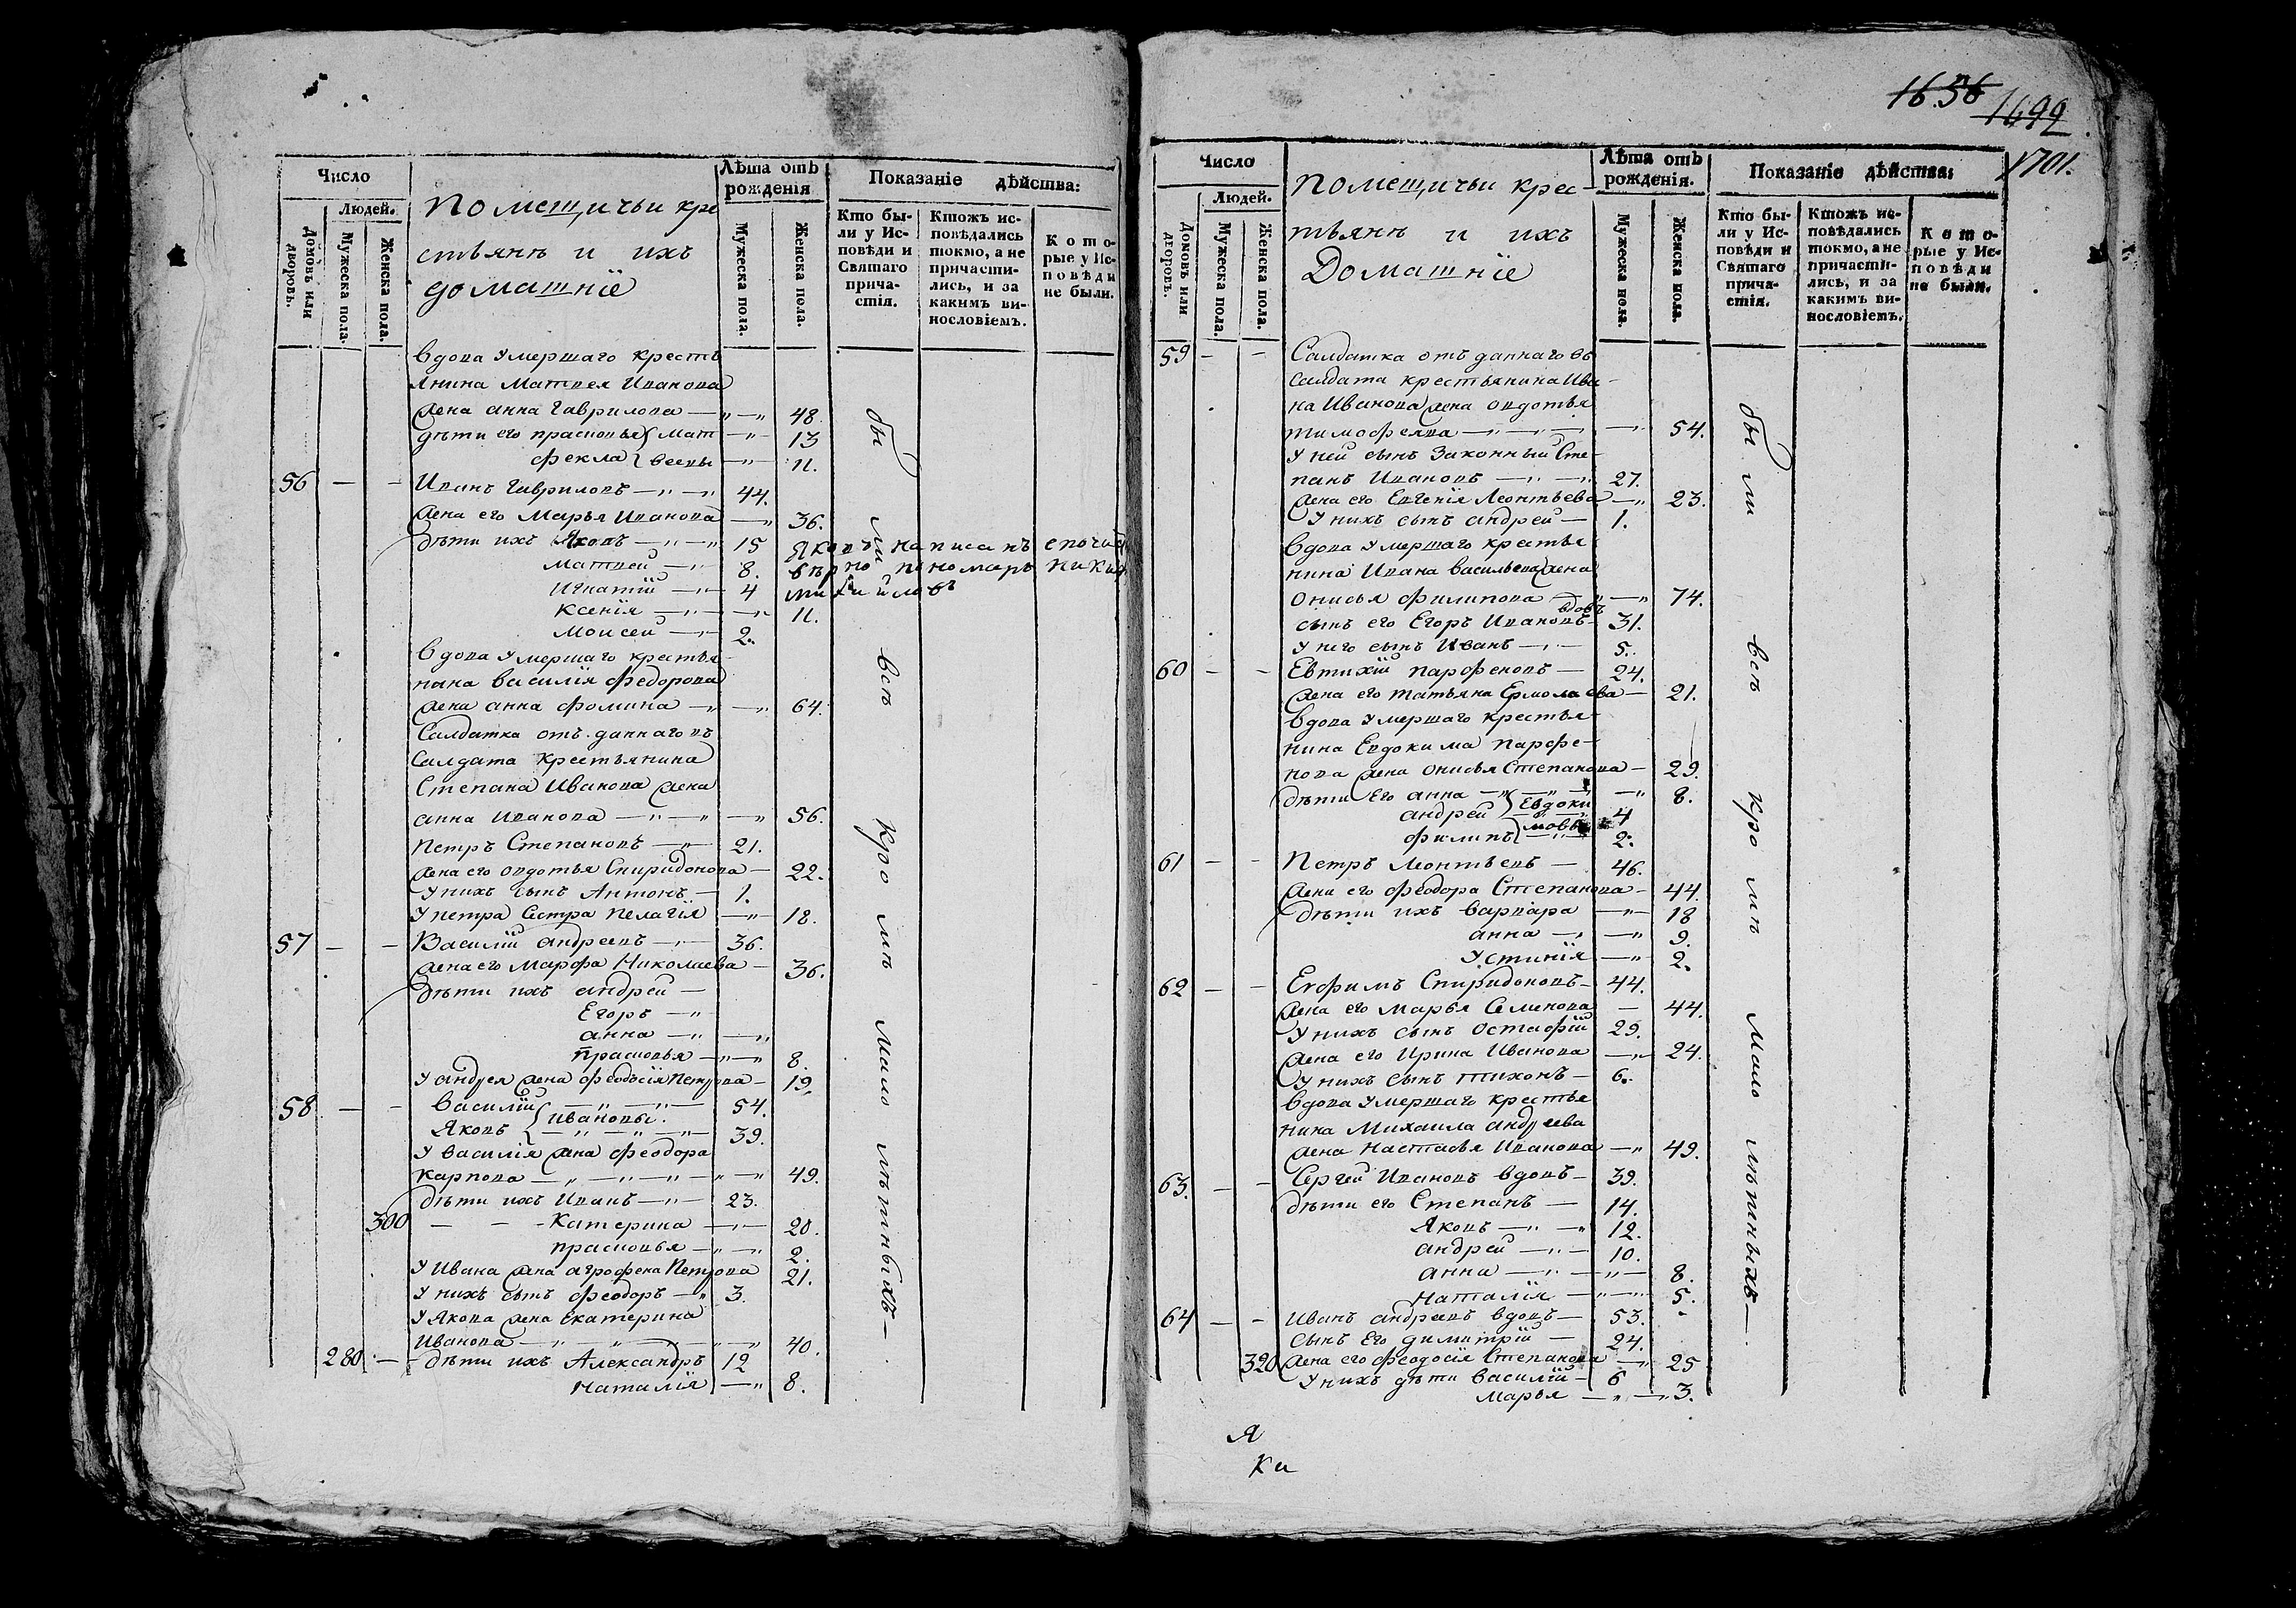 Число
Людей.
Домовъ или дворовъ.
Мужеска пола.
Женска пола.
Помещичьи кре
стьянѣ и ихъ
домашніе
Лѣта отъ рожденія
Мужеска пола.
Женска пола.
Показаніе дѣйства:
Кто бы-
ли у Ис-
повѣди и
Святаго
прича-
стія.
Ктожъ ис-
повѣдались
токмо, а не
причасти-
лись, и за
какимъ ви-
нословіемъ.
Кото-
рые у Ис-
повѣди
не были.
вдова умершаго кресть
янина Матвея Иванова
жена анна гаврилова 48
дѣти его прасковья Мат 13
фекла веевы 11.
56 — — Иванъ Гавриловъ 44.
жена его Марья Иванова 36.
дѣти ихъ Яковъ 15 Яковъ написанъ
Матвей 8. вѣрно пономарь
Игнатій 4 михайловъ
Ксенія 11.
Моисей 2.
вдова умершаго крестья
нина василія Федорова
жена анна фомина 64.
Салдатка отъ даннаго въ
Салдата крестьянина
Степана Иванова жена
анна Иванова 56.
Петръ Степановъ 21.
жена его овдотья Спиридонова 22.
У нихъ сынъ Антонъ 1.
У петра Сестра пелагія 18.
57 — — Василій андреевъ 36.
жена его Марфа Николаева 36.
дѣти ихъ андрей —
Егоръ —
анна —
прасковья 8.
У андрея жена феодосія Петрова 19
58 — — василій 54.
Ивановы.
Яковъ 39.
У василія жена феодора
карпова 49.
дѣти ихъ Иванъ 23.
300 — — Катерина 20.
прасковья 2.
У Ивана жена агрофена Петрова 21.
У нихъ сынъ феодоръ 3.
У Якова жена Екатерина
Иванова 40.
280 — дѣти ихъ Александръ 12
Наталія 8.
бы ли всѣ кро мѣ мало лѣтныхъ —
16.56
1699
1701.
Число
Людей.
Домовъ или дворовъ.
Мужеска пола.
Женска пола.
помещичьи крес-
тьянѣ и ихъ
Домашніе
Лѣта отъ рожденія.
Мужеска пола.
Женска пола.
Показаніе дѣйства:
Кто бы-
ли у Ис-
повѣди и
Святаго
прича-
стія.
Ктожъ ис-
повѣдались
токмо, а не
причасти-
лись, и за
какимъ ви-
нословіемъ.
Кото-
рые у Ис-
повѣди
не были.
59 — — Салдатка отъ даннаго въ
Салдата крестьянина Ива-
на Иванова жена овдотья
тимофеява 54.
У ней сынъ Законный Сте-
панъ Ивановъ 27.
жена его Евгенія Леонтьева 23.
У нихъ сынъ андрей 1.
вдова умершаго крестья
нина Ивана васильева жена
Онисья филипова 74.
вдовъ
сынъ его Егоръ Ивановъ 31.
У него сынъ Иванъ 5.
60 — — Евтихій парфеновъ 24.
жена его татьяна Ермолаева 21.
вдова умершаго крестья-
нина Евдокима парфе-
нова жена онисья Степанова 29.
дѣти Его анна 8.
андрей Евдоки 4
филипъ мовы 2.
61 — — Петръ Леонтьевъ 46.
жена его феодора Степанова 44.
дѣти ихъ варвара 18
анна 9.
Устинія 2.
62 — — Ефимъ Спиридоновъ 44.
жена его марья Семенова 44.
У нихъ сынъ остафій 29.
жена его Ирина Иванова 24.
У нихъ сынъ тихонъ 6.
вдова умершаго крестья
нина Михаила андреева
жена настасья Иванова 49.
63. — — Сергей Ивановъ вдовъ 39.
дѣти его Степанъ 14.
Яковъ 12.
андрей 10.
анна 8.
Наталія 5.
64 — — Иванъ андреевъ вдовъ 53.
сынъ Его димитрій 24.
320 жена его феодосія Степанова 25
У нихъ дѣти василій 6
марья 3.
бы ли всѣ кро мѣ мало лѣтныхъ —
Я
Ки